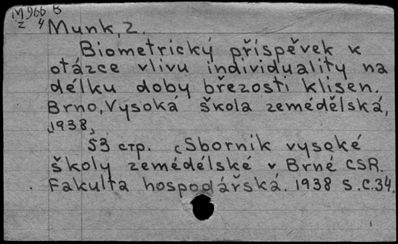 M 966 B
z 4
Munk, Z.
Biometrický příspěvek k
otázce vlivu individuality na
délku doby březosti klisen.
Brno, Vysoká škola zemědělská,
1938,
53 стр. (Sborník vysoké
školy zemědělské v Brně ČSR.
Fakulta hospodářská. 1938 S.C.34.